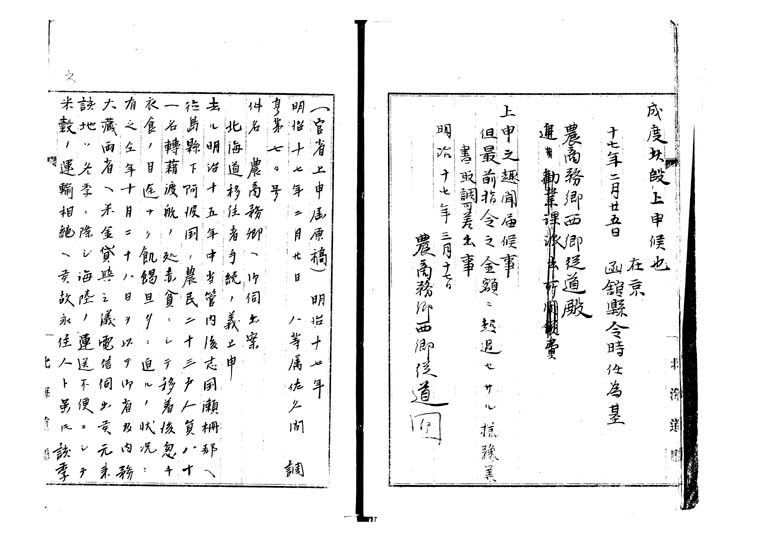 成度此段上申候也
在京
十七年二月廿五日 函館縣令時任為基
農商務卿西郷従道殿
上申之趣聞届候事
但最前指令之金額ニ超過セサル様
書取調差出事
明治十七年三月十七日
農商務卿西郷従道
(官省上申届原稿) 明治十七年
明治十七年二月廿日 八等属佐久間 調
第七〇号
件名 農商務卿ヘ御伺出案
北海道移住者手続ノ義上申
去ル明治十五年中当管内後志国瀬棚郡ヘ
徳島縣下阿波国ノ農民二十三戸人員八十
一名轉籍渡航ノ処素貧ニシテ移着後忽チ
衣食ノ目途ナク飢餲旦夕ニ迫ルノ状況ニ
有之仝年十月二十八日ヲ以テ御省及内務
大藏両省ヘ米金貸與之儀電信伺出
該地ハ冬季ニ際シ海陸ノ運送不便ニシテ
米穀ノ運輸相絶ヘ 故永住人ト虽モ該季